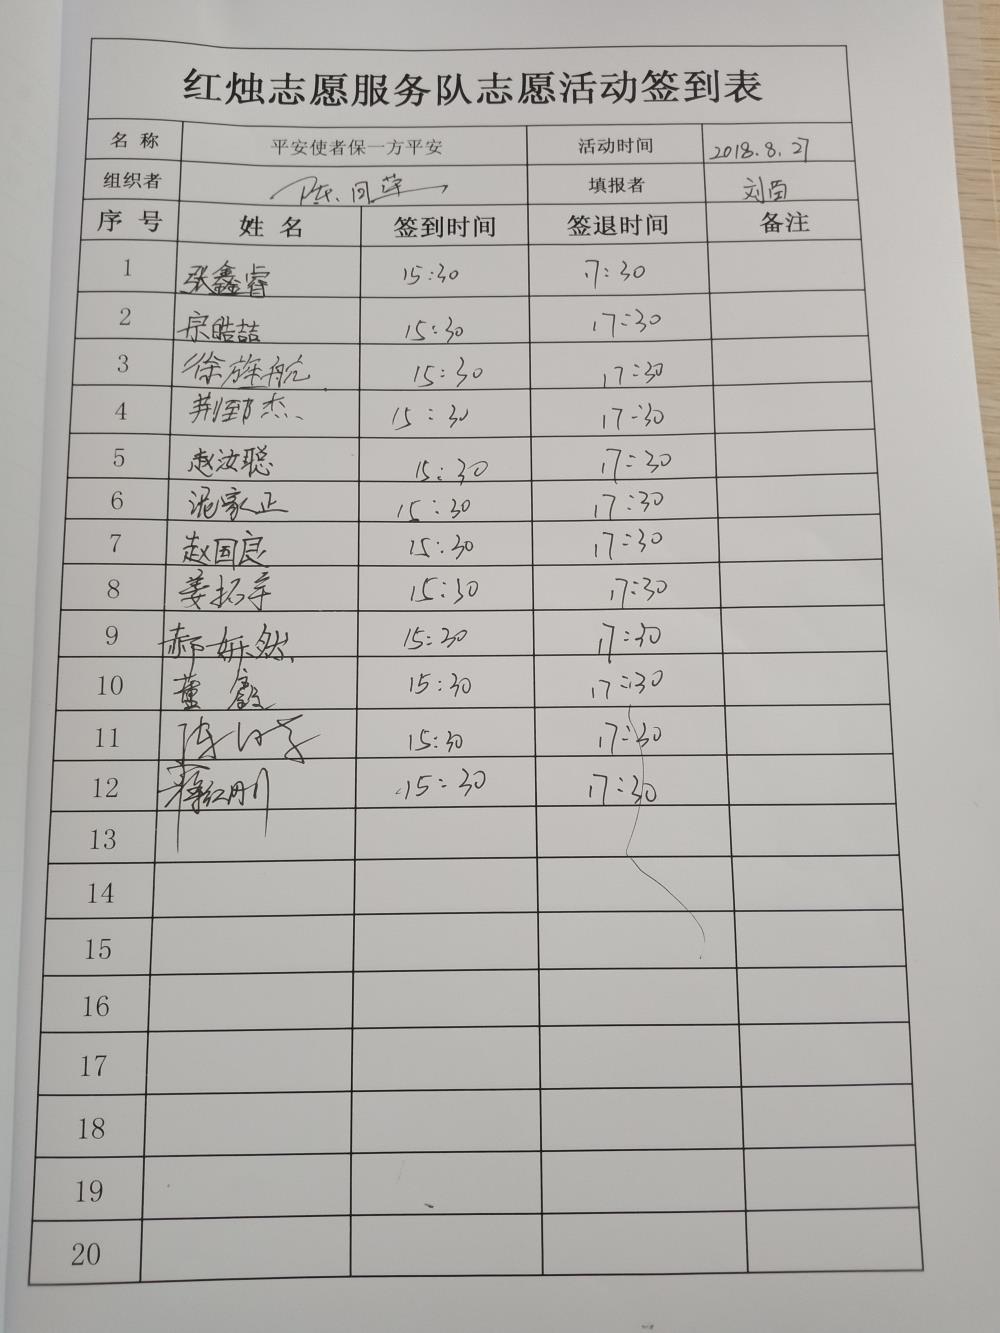 红烛志愿服务队志愿活动签到表
名 称 平安使者保一方平安 活动时间 2018.8.27
组织者 填报者 刘茵
序 号 姓 名 签到时间 签退时间 备注
1 张鑫睿 15:30 17:30
2 宗皓喆 15:30 17:30
3 徐 航 15:30 17:30
4 荆郅杰 15:30 17:30
5 赵汝聪 15:30 17:30
6 家正 15:30 17:30
7 赵国良 15:30 17:30
8 姜拓宇 15:30 17:30
9 郝 然 15:30 17:30
10 董 15:30 17:30
11 15:30 17:30
12 蒋红刚 15:30 17:30
13
14
15
16
17
18
19
20